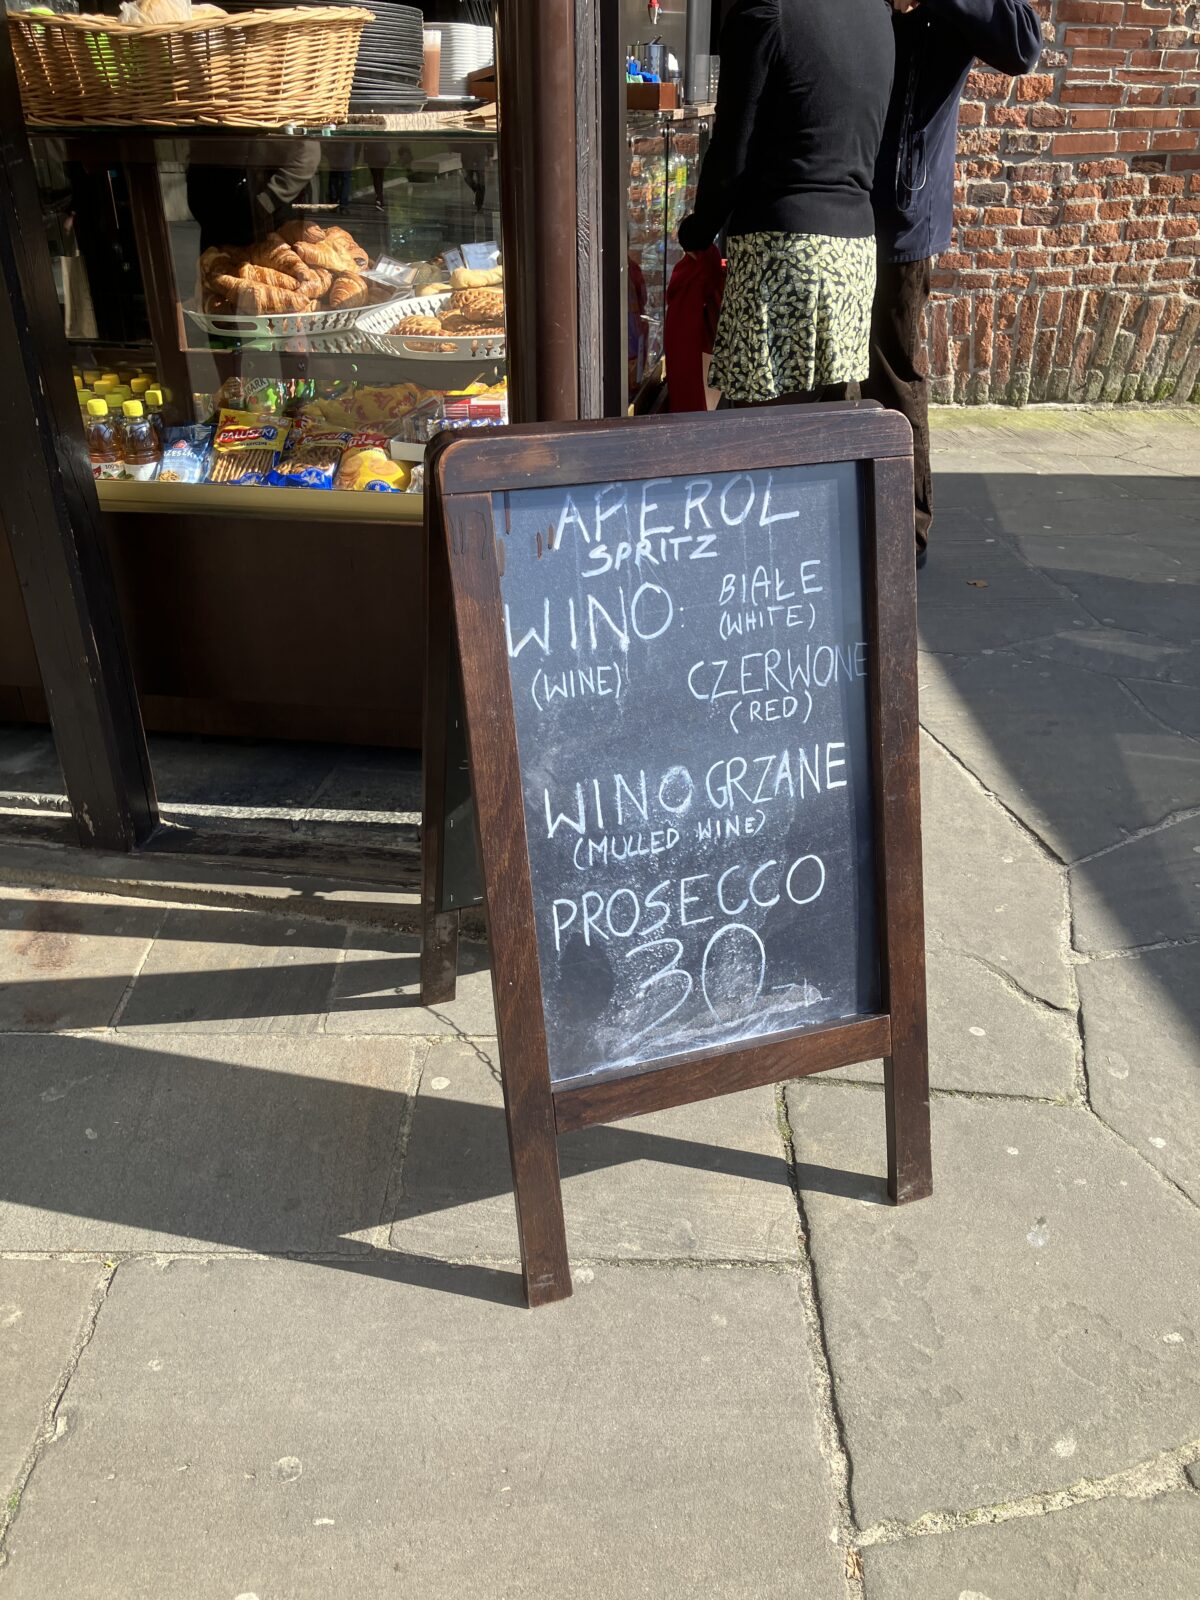 APEROL
SPRITZ
WINO: BIAŁE
(WHITE)
(WINE) CZERWONE
(RED)
WINO GRZANE
(MULLED WINE)
PROSECCO
30 ZŁ
PALUSZKI